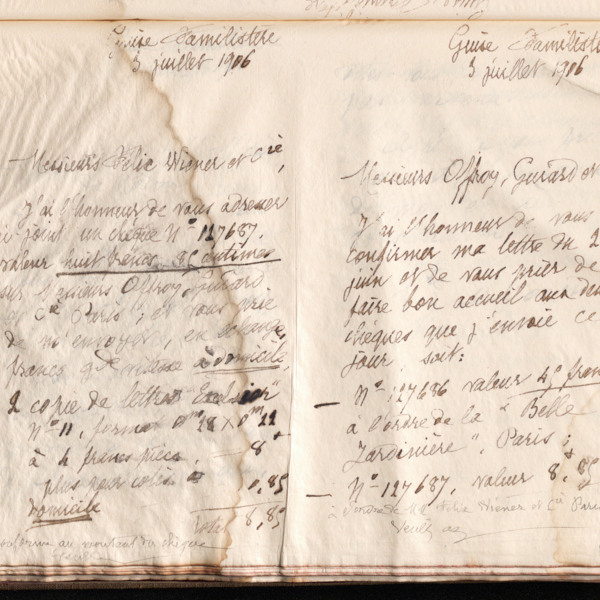 Guise Familistère
3 juillet 1906
Messieurs Félic Wiener et Cie,
J'ai l'honneur de vous adresser
ci joint un chèque No 127687,
valeur huit francs 85 centimes
sur Messieurs Offroy, Guiard
et Cie Paris; et vous prie
de m'envoyer, en échange,
franco de domicile,
2 copie de lettres "Excelsior"
No 11, format 0m28 x 0m22
à 4 francs pièce. 8 "
plus pour colis à 0,85
domicile
Total 8,85
conforme au montant du chèque
Guise Familist
3 juillet 1906
Messieurs Offroy, Guiard et
J'ai l'honneur de vous
confirmer ma lettre du 2
juin et de vous prier de
faire bon accueil aux deux
chèques que j'envoie ce
jour, soit:
— No 127686 valeur 40 fran
à l'ordre de la "Belle
Jardinière", Paris;
— No 127687, valeur 8,85
à l'ordre de MM Félic Wiener et Cie Paris
Veuillez